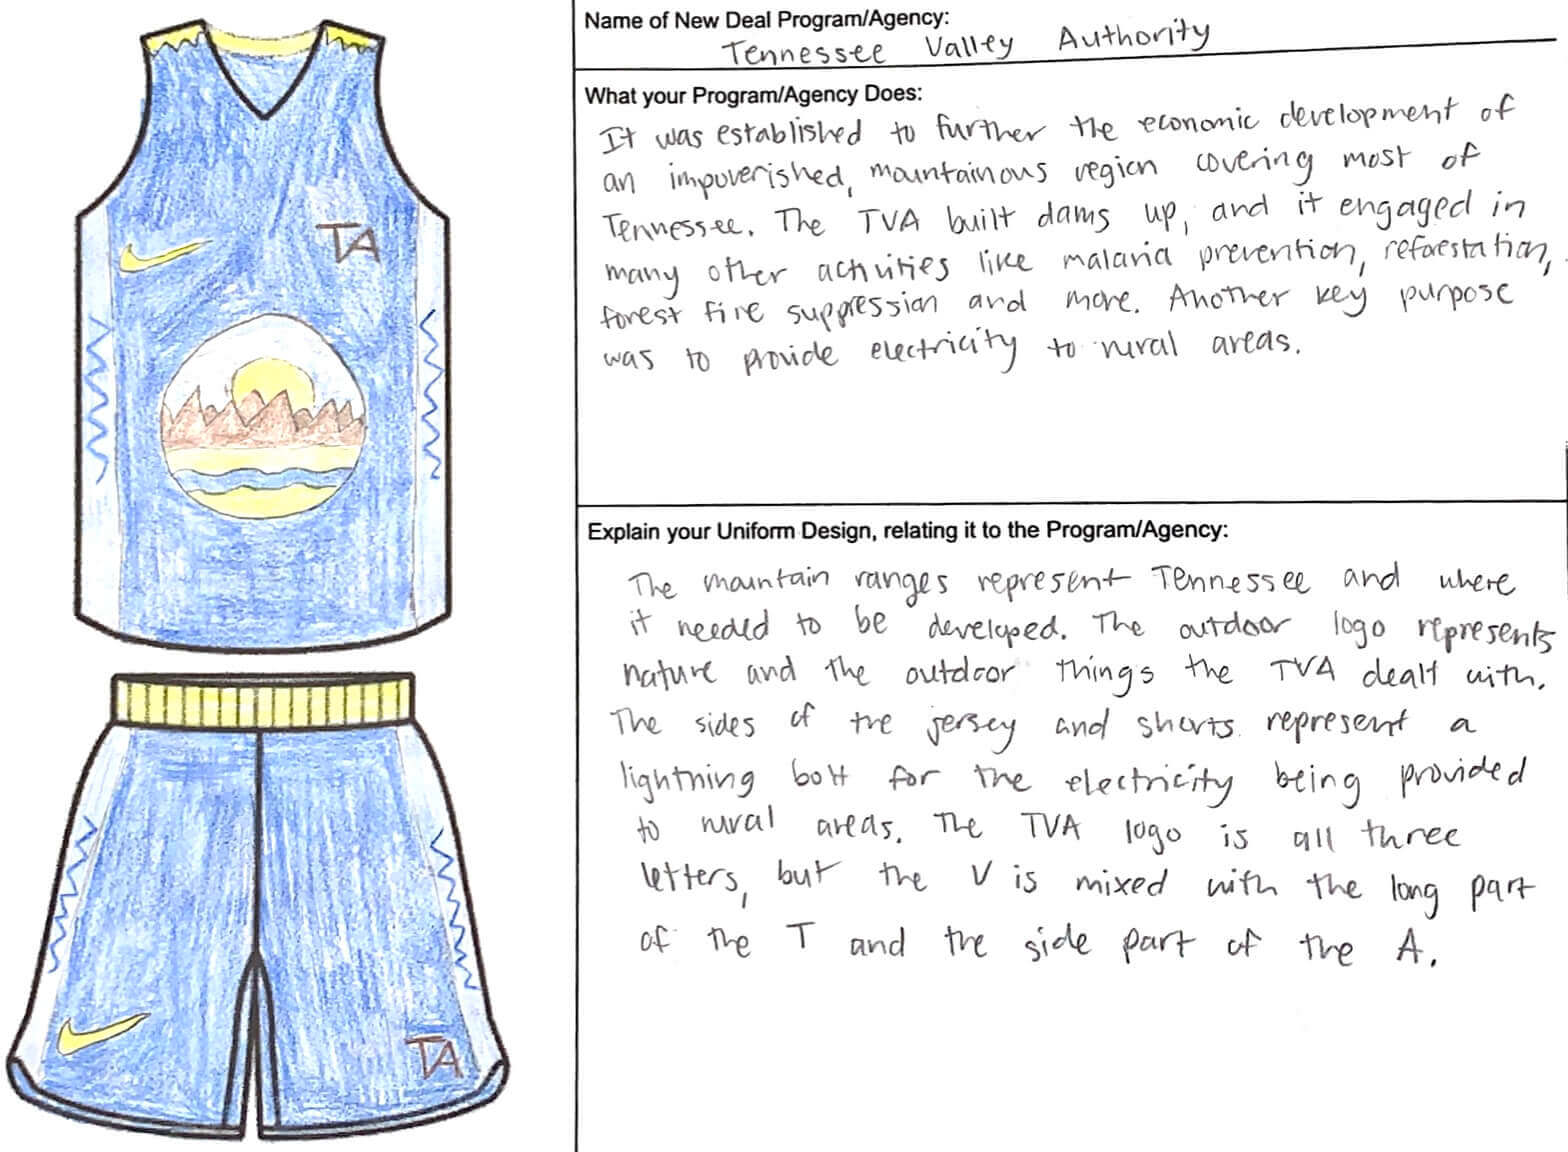 Name of New Deal Program/Agency:
Tennessee Valley Authority
What your Program/Agency Does:
It was established to further the economic development of
an impoverished, mountainous region covering most of
Tennessee. The TVA built dams up, and it engaged in
many other activities like malaria prevention, reforestation,
forest fire suppression and more. Another key purpose
was to provide electricity to rural areas.
Explain your Uniform Design, relating it to the Program/Agency:
The mountain ranges represent Tennessee and where
it needed to be developed. The outdoor logo represents
nature and the outdoor things the TVA dealt with.
The sides of the jersey and shorts represent a
lightning bolt for the electricity being provided
to rural areas. The TVA logo is all three
letters, but the V is mixed with the long part
of the T and the side part of the A.
TVA
TVA